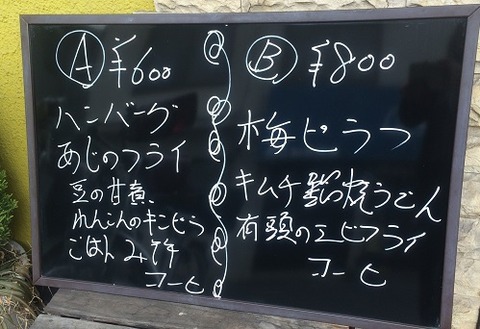 A ¥600
ハンバーグ
あじのフライ
豆の甘煮、
れんこんのキンピラ
ごはん みそ汁
コーヒ
B ¥800
梅ピラフ
キムチ 焼うどん
有頭のエビフライ
コーヒ